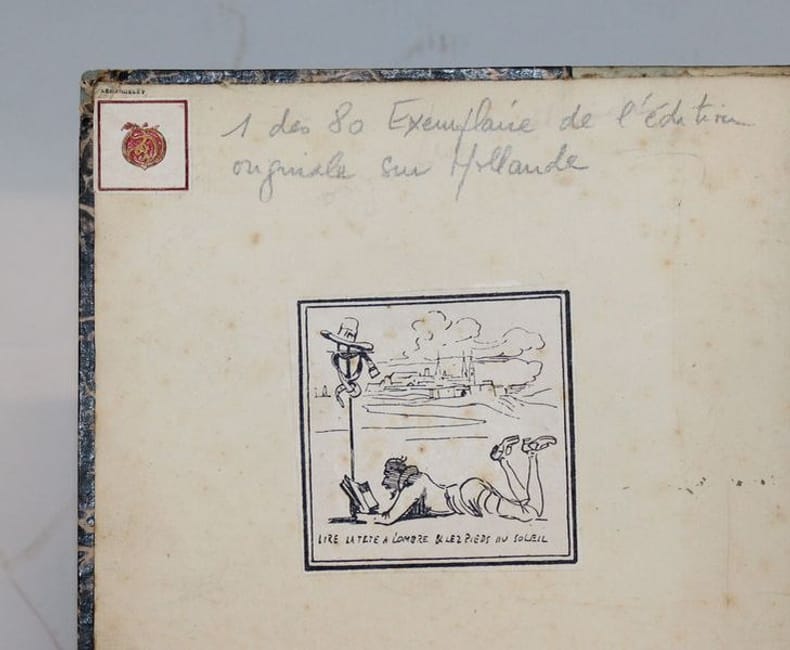 1 des 80 Exemplaire de l'édition
originale sur Hollande
LIRE LA TETE A L'OMBRE & LES PIEDS AU SOLEIL